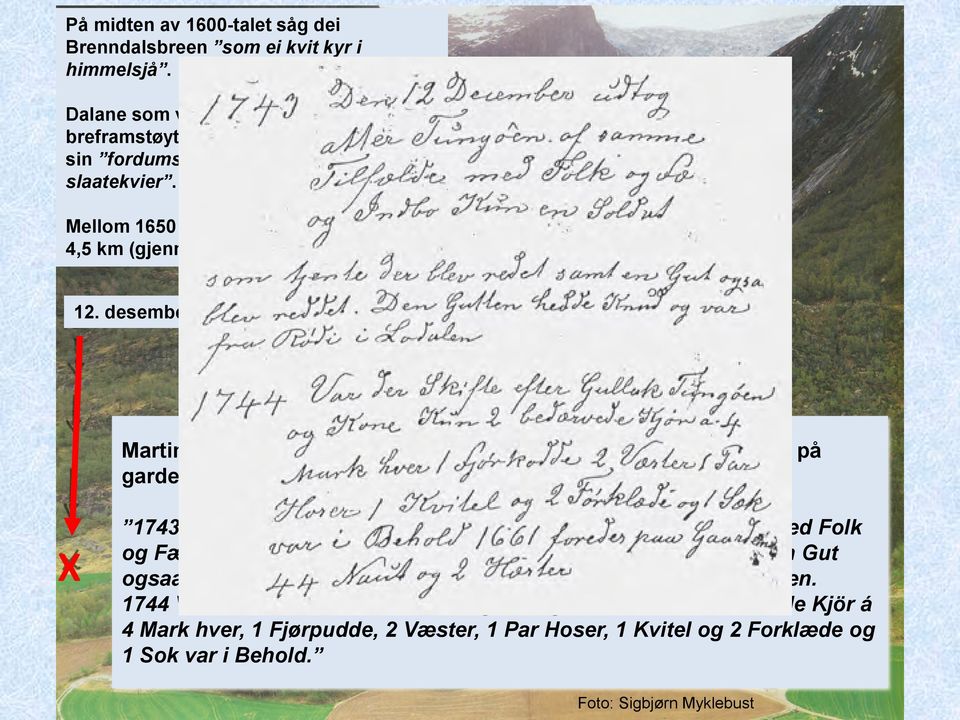 På midten av 1600-talet såg dei
Brenndalsbreen ”som ei kvit kyr i
himmelsjå”.
Dalane som
breframstøyt
sin ”fordums
slaatekvier”.
Mellom 1650
4,5 km (gjenn
12. desembe
1743 Den 12 December udtog
atter Tungöen. af samme
Tilfælde med Folk og Fæ
og Indbo Kun en Soldat
som tjente der blev redet samt en Gut ogsa
blev reddet. Den Gutten hedde Knud og var
fra Rödi i Lodalen
1744 Var der Skifte efter Gulluk Tungöen
og Kone Kun 2 bedærvede Kjör a. 4
Mark hver 1 Fjörkodde 2, Væster 1 Par
Hoser 1 Kvitel og 2 Förklæde og 1 Sok
var i Behold 1661 foredes paa Gaarden
44 Naut og 2 Hæster
Martin på
garde
”1743 ed Folk
og Fæ Gut
ogsaa en.
1744 de Kjör á
4 Mark hver, 1 Fjørpudde, 2 Væster, 1 Par Hoser, 1 Kvitel og 2 Forklæde og
1 Sok var i Behold.”
X
Foto: Sigbjørn Myklebust